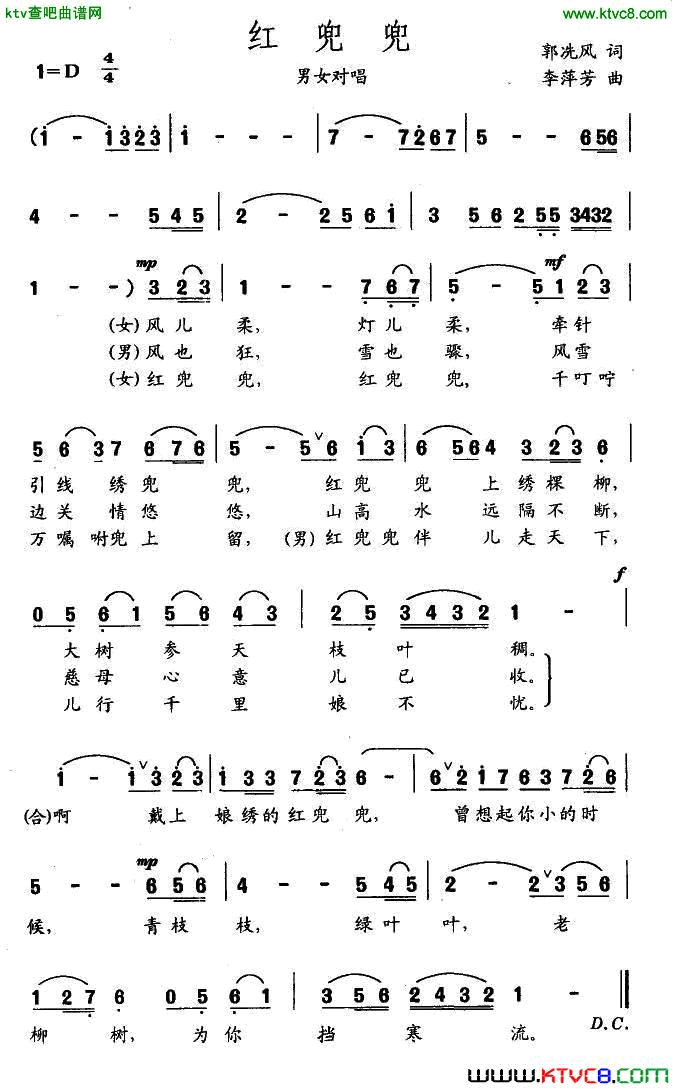 ktv查吧曲谱网
www.ktvc8.com
红兜兜
1=D 4/4
男女对唱
郭冼风 词
李萍芳 曲
(1 - 1323 | 1 - - - | 7 - 7267 | 5 - - 656 |
4 - - 545 | 2 - 2561 | 3 56 255 3432 |
mp mf
1 - -) 323 | 1 - - 767 | 5 - 5123 |
(女)风儿柔, 灯儿柔, 牵针
(男)风也狂, 雪也骤, 风雪
(女)红兜兜, 红兜兜, 千叮咛
5 6 37 676 | 5 - 5∨6 13 | 6 564 323 6 |
引线绣兜兜, 红兜兜上绣棵柳,
边关情悠悠, 山高水远隔不断,
万嘱咐兜上留, (男)红兜兜伴儿走天下,
f
05 61 56 43 | 25 3432 1 - |
大树参天枝叶稠。
慈母心意儿已收。
儿行千里娘不忧。
1 - 1∨323 | 133 723 6 - | 6∨2 1763 726 |
(合)啊 戴上娘绣的红兜兜, 曾想起你小的时
mp
5 - - 656 | 4 - - 545 | 2 - 2∨356 |
候, 青枝枝, 绿叶叶, 老
127 6 05 61 | 356 2432 1 - ‖
柳树, 为你挡寒流。
D.C.
www.KTVC8.com